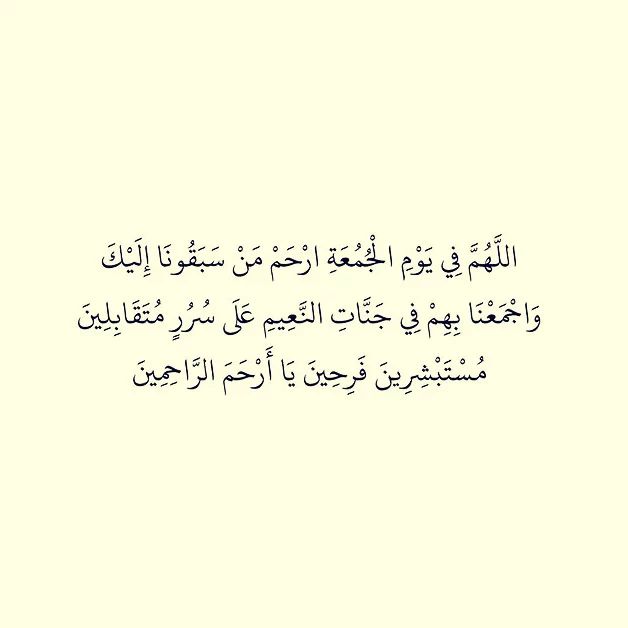 اللَّهُمَّ فِي يَوْمِ الْجُمُعَةِ ارْحَمْ مَنْ سَبَقُونَا إِلَيْكَ
وَاجْمَعْنَا بِهِمْ فِي جَنَّاتِ النَّعِيمِ عَلَى سُرُرٍ مُتَقَابِلِينَ
مُسْتَبْشِرِينَ فَرِحِينَ يَا أَرْحَمَ الرَّاحِمِينَ